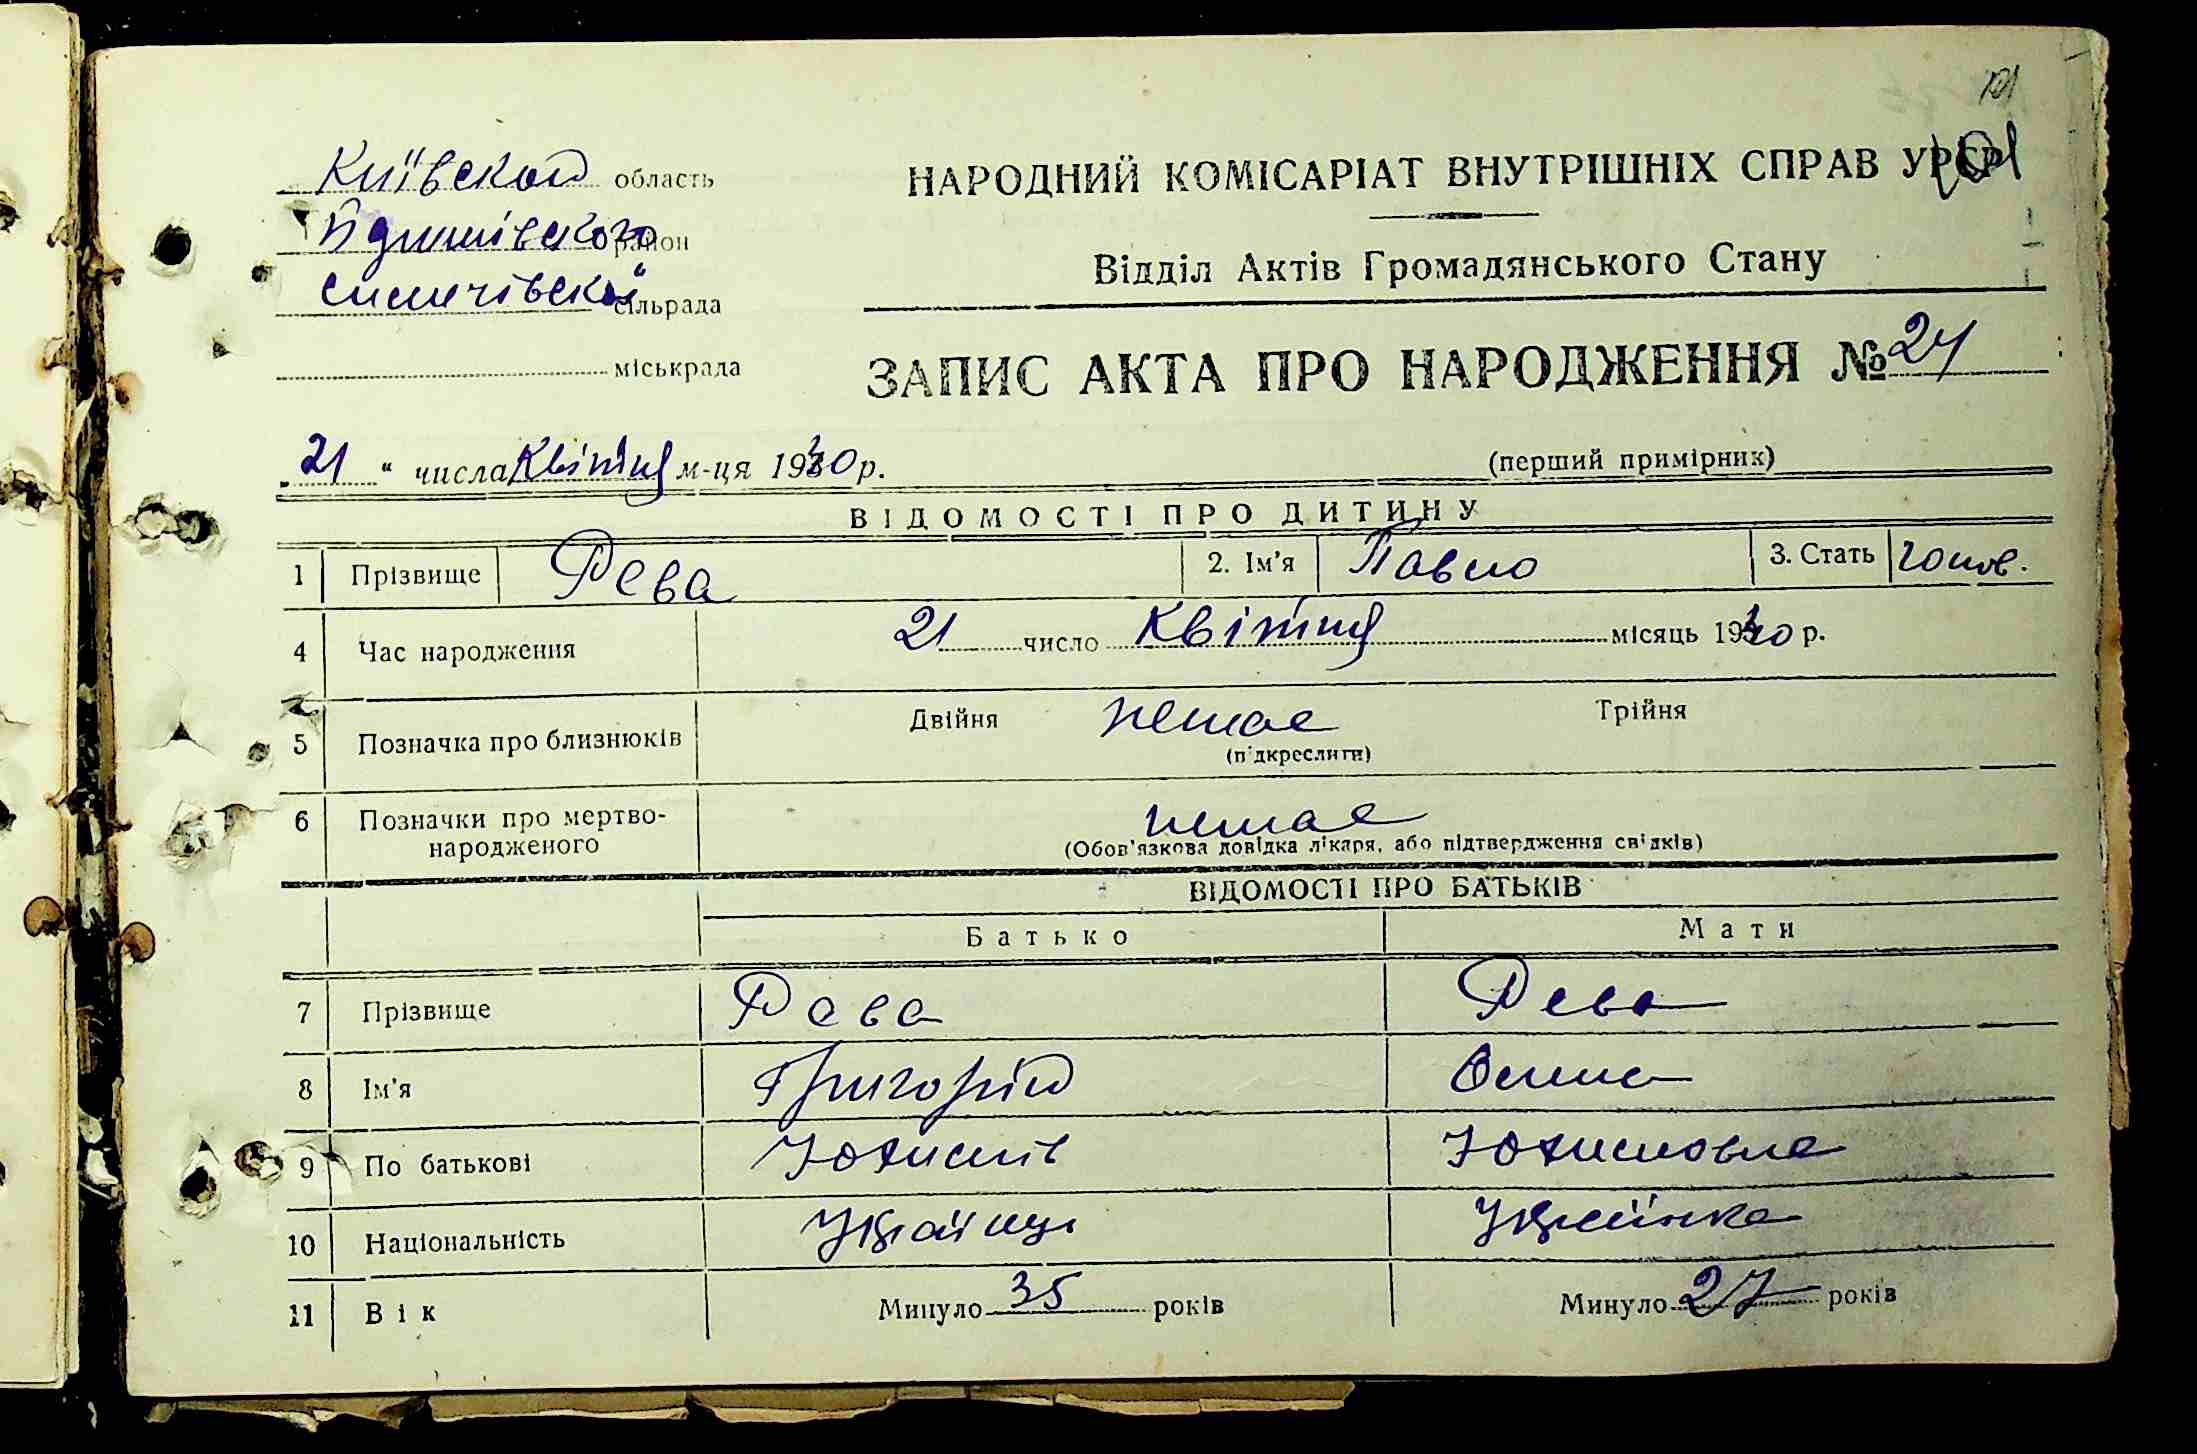 101
Київской область
район
сільрада
міськрада
НАРОДНИЙ КОМІСАРІАТ ВНУТРІШНІХ СПРАВ УРСР
101
Відділ Актів Громадянського Стану
ЗАПИС АКТА ПРО НАРОДЖЕННЯ №
„21“ числа Квітня м-ця 1940 р.
(перший примірник)
ВІДОМОСТІ ПРО ДИТИНУ
1 Прізвище Рева 2. Ім'я Павло 3. Стать чолов.
4 Час народження 21 число Квітня місяць 1940 р.
5 Позначка про близнюків Двійня немає Трійня
(підкреслити)
6 Позначки про мертво-
народженого немає
(Обов'язкова довідка лікаря, або підтвердження свідків)
ВІДОМОСТІ ПРО БАТЬКІВ
Батько Мати
7 Прізвище Рева Рева
8 Ім'я Григорій
9 По батькові Юхимів Юхимовна
10 Національність Україць Українка
11 Вік Минуло 35 років Минуло 27 років